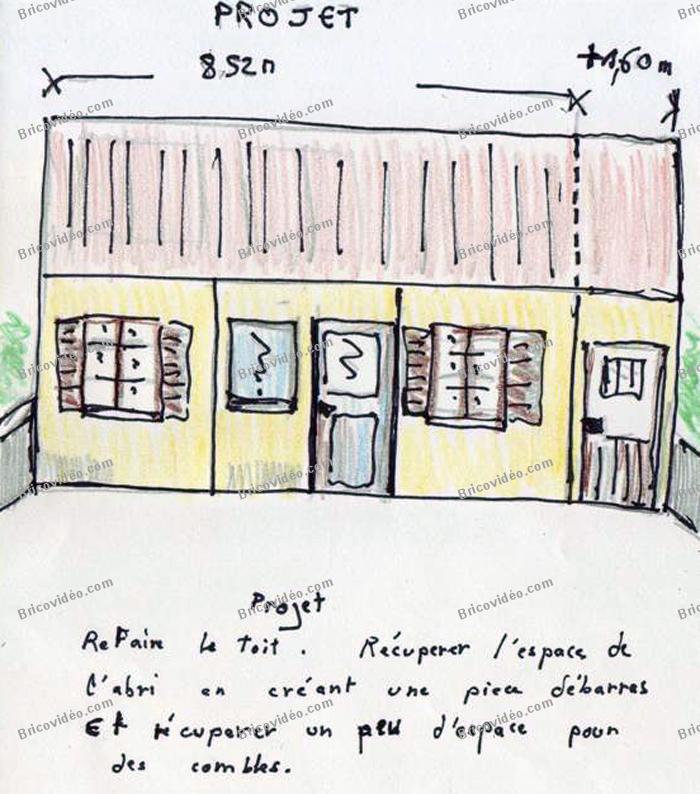 PROJET
8,52m
+1,60m
Projet
Refaire le toit. Récuperer l'espace de
l'abri en créant une piece débarras
Et récuperer un peu d'espace pour
des combles.
Bricovidéo.com